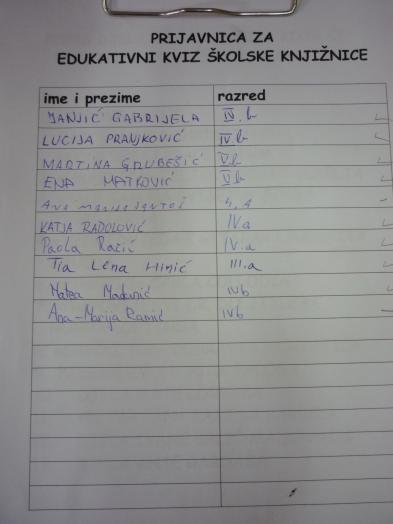 PRIJAVNICA ZA
EDUKATIVNI KVIZ ŠKOLSKE KNJIŽNICE
ime i prezime razred
JANJIĆ GABRIJELA IV. b
LUCIJA PRANJKOVIĆ IV. b
MARTINA GRUBEŠIĆ V.b
ENA MATKOVIĆ V.b
Ana Marija 4. A
KATJA RADOLOVIĆ IV.a
Paola Racić IV.a
Tia Lena Hinić III.a
Matea IVb
Ana-Marija Ramić IVb